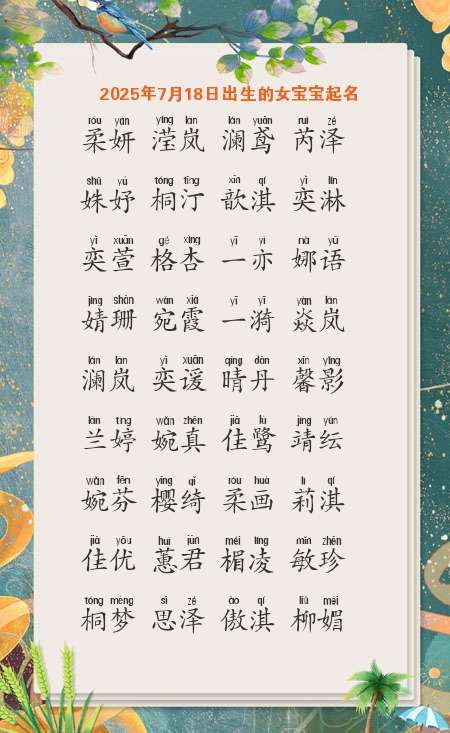 2025年7月18日出生的女宝宝起名
róu yán yíng lán lán yuān ruì zé
柔妍 滢岚 澜鸢 芮泽
shū yú tóng tīng xīn qí yì lín
姝妤 桐汀 歆淇 奕淋
yì xuān gé xìng yī yì nà yǔ
奕萱 格杏 一亦 娜语
jìng shān wǎn xiá yī yī yàn lán
婧珊 宛霞 一漪 焱岚
lán lán yì xuān qíng dān xīn yǐng
澜岚 奕谖 晴丹 馨影
lán tíng wǎn zhēn jiā lù jìng yún
兰婷 婉真 佳鹭 靖纭
wǎn fēn yīng qǐ róu huà lì qí
婉芬 樱绮 柔画 莉淇
jiā yōu huì jūn méi líng mǐn zhēn
佳优 蕙君 楣凌 敏珍
tóng mèng sī zé ào qí liǔ mèi
桐梦 思泽 傲淇 柳媚